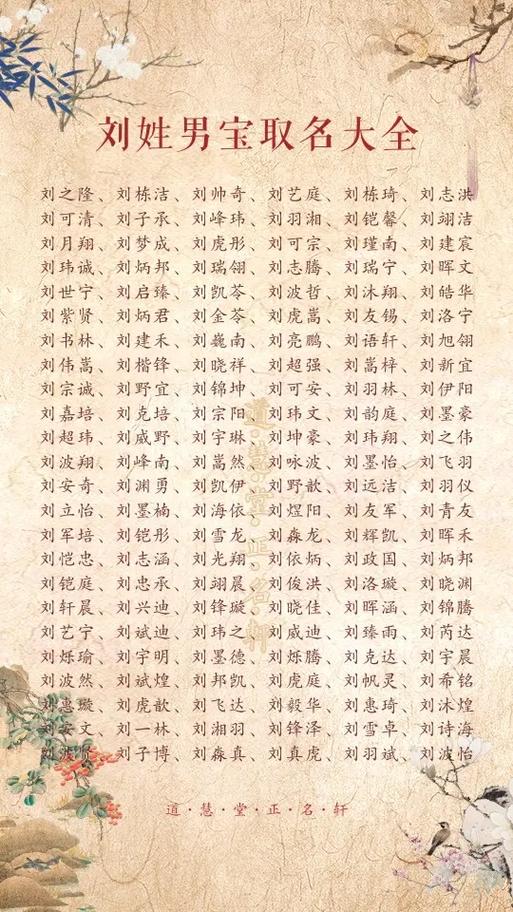 刘姓男宝取名大全
刘之隆、刘栋洁、刘帅奇、刘艺庭、刘栋琦、刘志洪
刘可清、刘子承、刘峰玮、刘羽湘、刘铠馨、刘翊洁
刘月翔、刘梦成、刘虎彤、刘可宗、刘瑾南、刘建宸
刘玮诚、刘炳邦、刘瑞翎、刘志腾、刘瑞宁、刘晖文
刘世宁、刘启臻、刘凯苓、刘波哲、刘沐翔、刘皓华
刘紫贤、刘炳君、刘金苓、刘虎嵩、刘友锡、刘洛宁
刘书林、刘建禾、刘巍南、刘亮鹏、刘语轩、刘旭翎
刘伟嵩、刘楷锋、刘晓祥、刘超强、刘嵩梓、刘新宜
刘宗诚、刘野宜、刘锦坤、刘可安、刘羽林、刘伊阳
刘嘉培、刘克培、刘宗阳、刘玮文、刘韵庭、刘墨豪
刘超玮、刘威野、刘宇琳、刘坤豪、刘玮翔、刘之伟
刘波翔、刘峰南、刘嵩然、刘咏波、刘墨怡、刘飞羽
刘安奇、刘渊勇、刘凯伊、刘野歆、刘远洁、刘羽仪
刘立怡、刘墨楠、刘海依、刘煜阳、刘友军、刘青友
刘军培、刘铠彤、刘雪龙、刘淼龙、刘辉凯、刘晖禾
刘恺忠、刘志涵、刘光翔、刘依炳、刘政国、刘炳邦
刘铠庭、刘忠承、刘翊晨、刘俊洪、刘洛璇、刘晓渊
刘轩晨、刘兴迪、刘锋璇、刘晓佳、刘晖涵、刘锦腾
刘艺宁、刘斌迪、刘玮之、刘威迪、刘臻雨、刘芮达
刘烁瑜、刘宇明、刘墨德、刘烁腾、刘克达、刘宇晨
刘波然、刘斌煌、刘邦凯、刘虎庭、刘帆灵、刘希铭
刘惠璇、刘虎歆、刘飞达、刘毅华、刘惠琦、刘沐煌
刘安文、刘一林、刘湘羽、刘锋泽、刘雪卓、刘诗海
刘波贤、刘子博、刘淼真、刘真虎、刘羽斌、刘波怡
道·慧·堂·正·名·轩